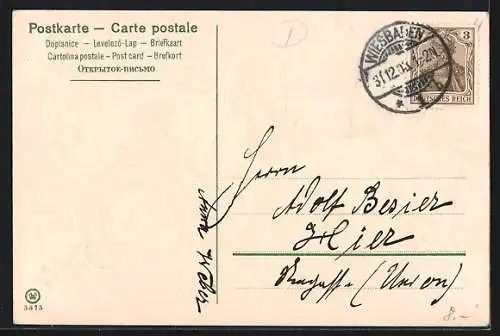 Postkarte — Carte postale
Dopisnice — Levelező-Lap — Briefkaart
Cartolina postale — Post card — Brefkort
Открытое-письмо
D
WIESBADEN
31.12.
3
DEUTSCHES REICH
Herrn
Adolf Besier
Hier
(Union)
Anna Weber
3873
8.-